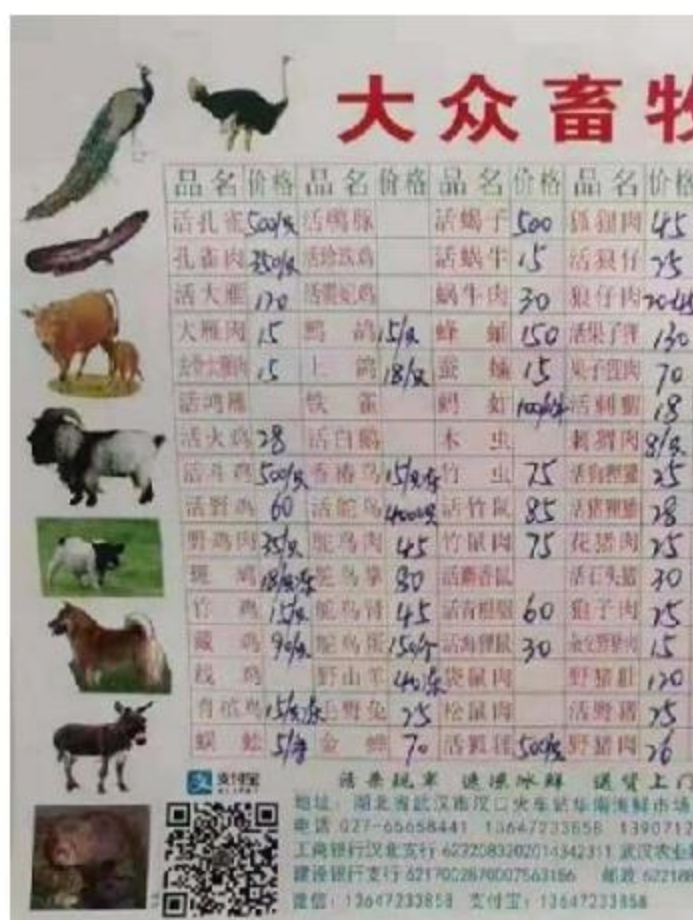 大众畜牧
品名 价格 品名 价格 品名 价格 品名 价格
活孔雀 500/只 活鸣豚 活蝎子 500 狐狸肉 45
孔雀肉 350/只 活珍珠鸡 活蜗牛 15 活狼仔 25
活大雁 120 活贵妃鸡 蜗牛肉 30 狼仔肉
大雁肉 15 鹧鸪 15/只 蜂蛹 150 活果子狸 130
15 土鸽 18/只 蚕蛹 15 果子狸肉 70
活鸿雁 铁雀 蚂蚁 活刺猬 18
活火鸡 28 活白鹅 木虫 刺猬肉 8/只
活斗鸡 500/只 香椿鸟 竹虫 75 活狗狸獾 25
活野鸡 60 活鸵鸟 4000/只 活竹鼠 85 活猪狸獾 28
野鸡肉 35/只 鸵鸟肉 45 竹鼠肉 75 花猪肉 25
斑鸠 鸵鸟掌 80 活麝香鼠 活石头猪 30
竹鸡 15/只 鸵鸟肾 45 60 狍子肉 25
藏鸡 90/只 鸵鸟蛋 150/个 活海狸鼠 30 杂交野猪肉 15
线鸡 野山羊 袋鼠肉 野猪肚 120
野兔 25 松鼠肉 活野猪 25
蜈蚣 金蝉 70 500/只 野猪肉 26
支付宝
活杀现宰 速冻冰鲜 送货上门
地址：湖北省武汉市汉口火车站华南海鲜市场
电话 027-65658441 13647233858 1390712
工商银行汉北支行 武汉农业
建设银行支行 6217002870007563186 邮政 622188
微信：13647233858 支付宝：13647233858